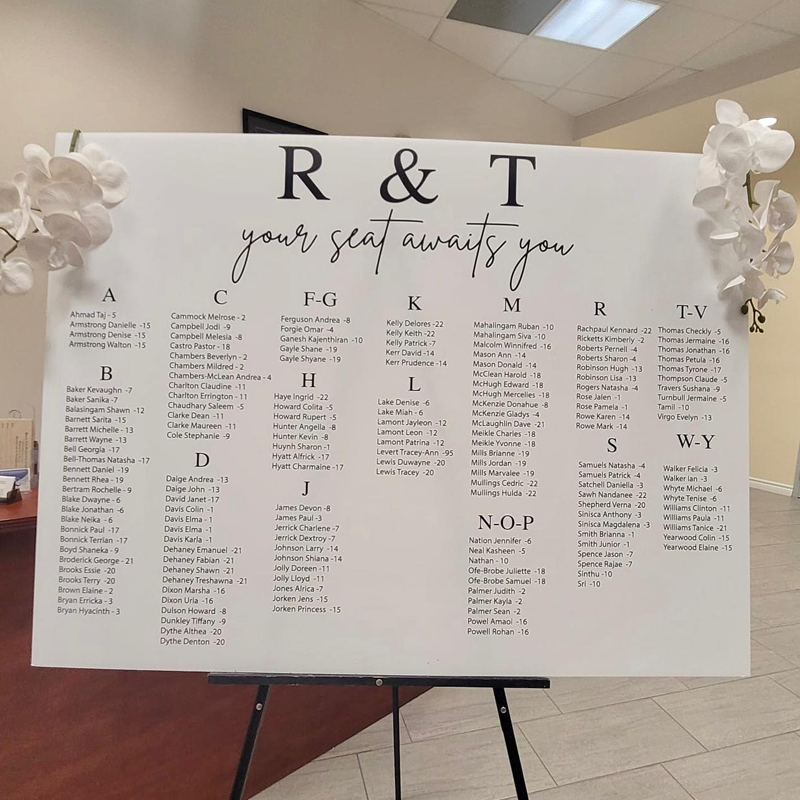 R & T
your seat awaits you
A
Ahmad Taj - 5
Armstrong Danielle -15
Armstrong Denise -15
Armstrong Walton -15
B
Baker Kevaughn -7
Baker Sanika -7
Balasingam Shawn -12
Barnett Sarita -15
Barrett Michelle -13
Barrett Wayne -13
Bell Georgia -17
Bell-Thomas Natasha -17
Bennett Daniel -19
Bennett Rhea -19
Bertram Rochelle -9
Blake Dwayne -6
Blake Jonathan -6
Blake Neika -6
Bonnick Paul -17
Bonnick Terrian -17
Boyd Shaneka -9
Broderick George -21
Brooks Essie -20
Brooks Terry -20
Brown Elaine -2
Bryan Erricka -3
Bryan Hyacinth -3
C
Cammock Melrose - 2
Campbell Jodi -9
Campbell Melesia -8
Castro Pastor -18
Chambers Beverlyn - 2
Chambers Mildred - 2
Chambers-McLean Andrea - 4
Charlton Claudine -11
Charlton Errington - 11
Chaudhary Saleem -5
Clarke Dean -11
Clarke Maureen -11
Cole Stephanie -9
D
Daige Andrea -13
Daige John -13
David Janet -17
Davis Colin -1
Davis Elma -1
Davis Elma -1
Davis Karla -1
Dehaney Emanuel -21
Dehaney Fabian -21
Dehaney Shawn -21
Dehaney Treshawna -21
Dixon Marsha -16
Dixon Uria -16
Dulson Howard -8
Dunkley Tiffany -9
Dythe Althea -20
Dythe Denton -20
F-G
Ferguson Andrea -8
Forgie Omar -4
Ganesh Kajenthiran -10
Gayle Shane -19
Gayle Shyane -19
H
Haye Ingrid -22
Howard Colita -5
Howard Rupert -5
Hunter Angella -8
Hunter Kevin -8
Huynh Sharon -1
Hyatt Alfrick -17
Hyatt Charmaine -17
J
James Devon -8
James Paul -3
Jerrick Charlene -7
Jerrick Dextroy -7
Johnson Larry -14
Johnson Shiana -14
Jolly Doreen -11
Jolly Lloyd -11
Jones Alrica -7
Jorken Jens -15
Jorken Princess -15
K
Kelly Delores -22
Kelly Keith -22
Kelly Patrick -7
Kerr David -14
Kerr Prudence -14
L
Lake Denise -6
Lake Miah - 6
Lamont Jayleon -12
Lamont Leon -12
Lamont Patrina -12
Levert Tracey-Ann -95
Lewis Duwayne -20
Lewis Tracey -20
M
Mahalingam Ruban -10
Mahalingam Siva -10
Malcolm Winnifred -16
Mason Ann -14
Mason Donald -14
McClean Harold -18
McHugh Edward -18
McHugh Mercelles -18
McKenzie Donahue -8
McKenzie Gladys -4
McLaughlin Dave -21
Meikle Charles -18
Meikle Yvonne -18
Mills Brianne -19
Mills Jordan -19
Mills Marvalee -19
Mullings Cedric -22
Mullings Hulda -22
N-O-P
Nation Jennifer -6
Neal Kasheen -5
Nathan - 10
Ofe-Brobe Juliette -18
Ofe-Brobe Samuel -18
Palmer Judith -2
Palmer Kayla -2
Palmer Sean -2
Powel Amaol -16
Powell Rohan -16
R
Rachpaul Kennard -22
Ricketts Kimberly -2
Roberts Pernell -4
Roberts Sharon -4
Robinson Hugh -13
Robinson Lisa -13
Rogers Natasha -4
Rose Jalen -1
Rose Pamela -1
Rowe Karen -14
Rowe Mark -14
S
Samuels Natasha -4
Samuels Patrick -4
Satchell Daniella -3
Sawh Nandanee -22
Shepherd Verna -20
Sinisca Anthony -3
Sinisca Magdalena -3
Smith Brianna -1
Smith Junior -1
Spence Jason -7
Spence Rajae -7
Sinthu -10
Sri -10
T-V
Thomas Checkly -5
Thomas Jermaine -16
Thomas Jonathan -16
Thomas Petula -16
Thomas Tyrone -17
Thompson Claude -5
Travers Sushana -9
Turnbull Jermaine -5
Tamil -10
Virgo Evelyn -13
W-Y
Walker Felicia -3
Walker Ian -3
Whyte Michael -6
Whyte Tenise -6
Williams Clinton -11
Williams Paula -11
Williams Tanice -21
Yearwood Colin -15
Yearwood Elaine -15